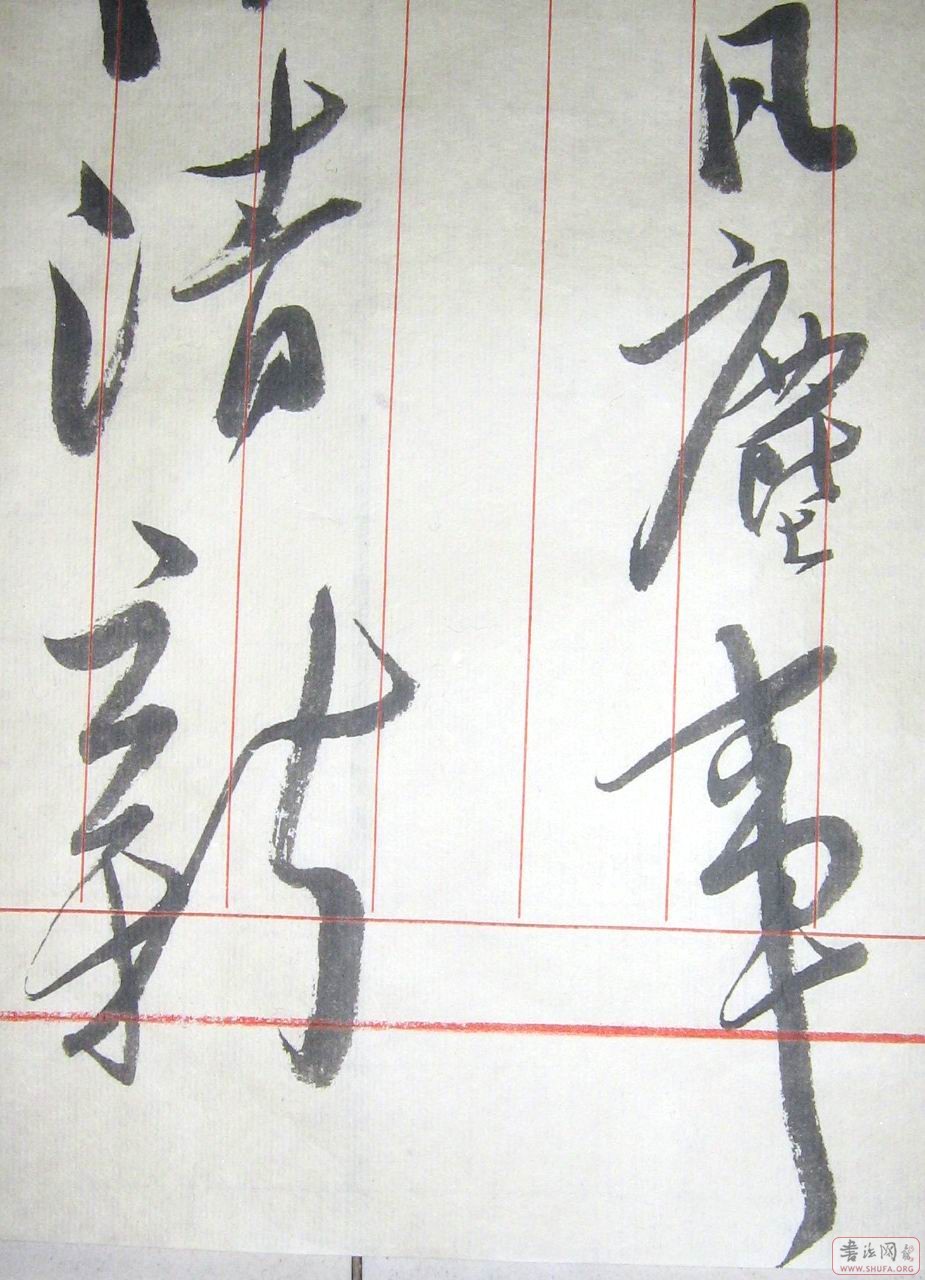 風塵事
清新
書法网
WWW.SHUFA.ORG